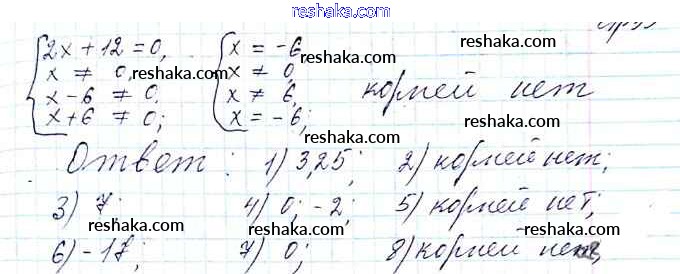 reshaka.com
2x + 12 = 0, x = -6
x ≠ 0, x ≠ 0,
x - 6 ≠ 0, x ≠ 6, корней нет
x + 6 ≠ 0; x = -6;
Ответ: 1) 3,25; 2) корней нет;
3) 7; 4) 0; -2; 5) корней нет;
6) -17; 7) 0; 8) корней нет,
reshaka.com reshaka.com
reshaka.com reshaka.com reshaka.com
reshaka.com reshaka.com
reshaka.com reshaka.com reshaka.com
reshaka.com